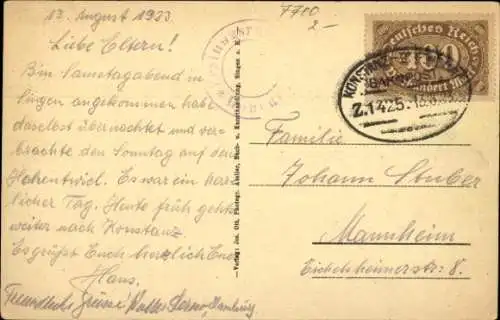 13. August 1933
7700
2.-
Liebe Eltern!
Bin Samstagabend in
Singen angekommen habe
daselbst übernachtet und ver-
brachte den Sonntag auf dem
Hohentwiel. Es war ein herr-
licher Tag. Heute früh gehts
weiter nach Konstanz.
Es grüsst Euch herzlich Euer
Hans.
Freundliche Grüsse Hamburg
Verlag: Jos. Ott, Photogr. Atelier, Buch- u. Kunsthandlung, Singen a. H.
Deutsches Reich
400
KONSTANZ
BAHNPOST
Z.1425
Familie
Johann Stuber
Mannheim
Eichelsheimerstr. 8.